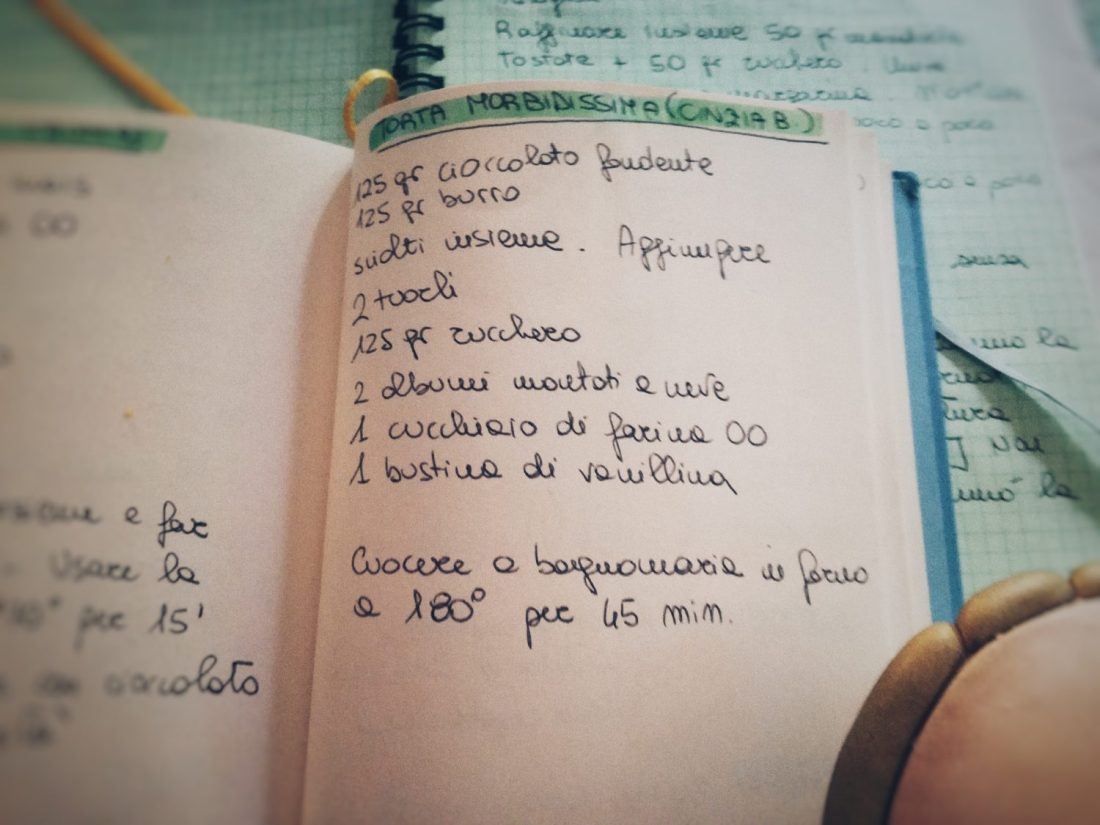 TORTA MORBIDISSIMA (CINZIA B.)
125 gr cioccolato fondente
125 gr burro
sciolti insieme. Aggiungere
2 tuorli
125 gr zucchero
2 albumi montati a neve
1 cucchiaio di farina 00
1 bustina di vanillina
Cuocere a bagnomaria in forno
a 180° per 45 min.
00
e far
Usare la
per 15'
cioccolato
Raffinare insieme 50 gr
tostate + 50 gr zucchero.
poco a poco
senza
la
la